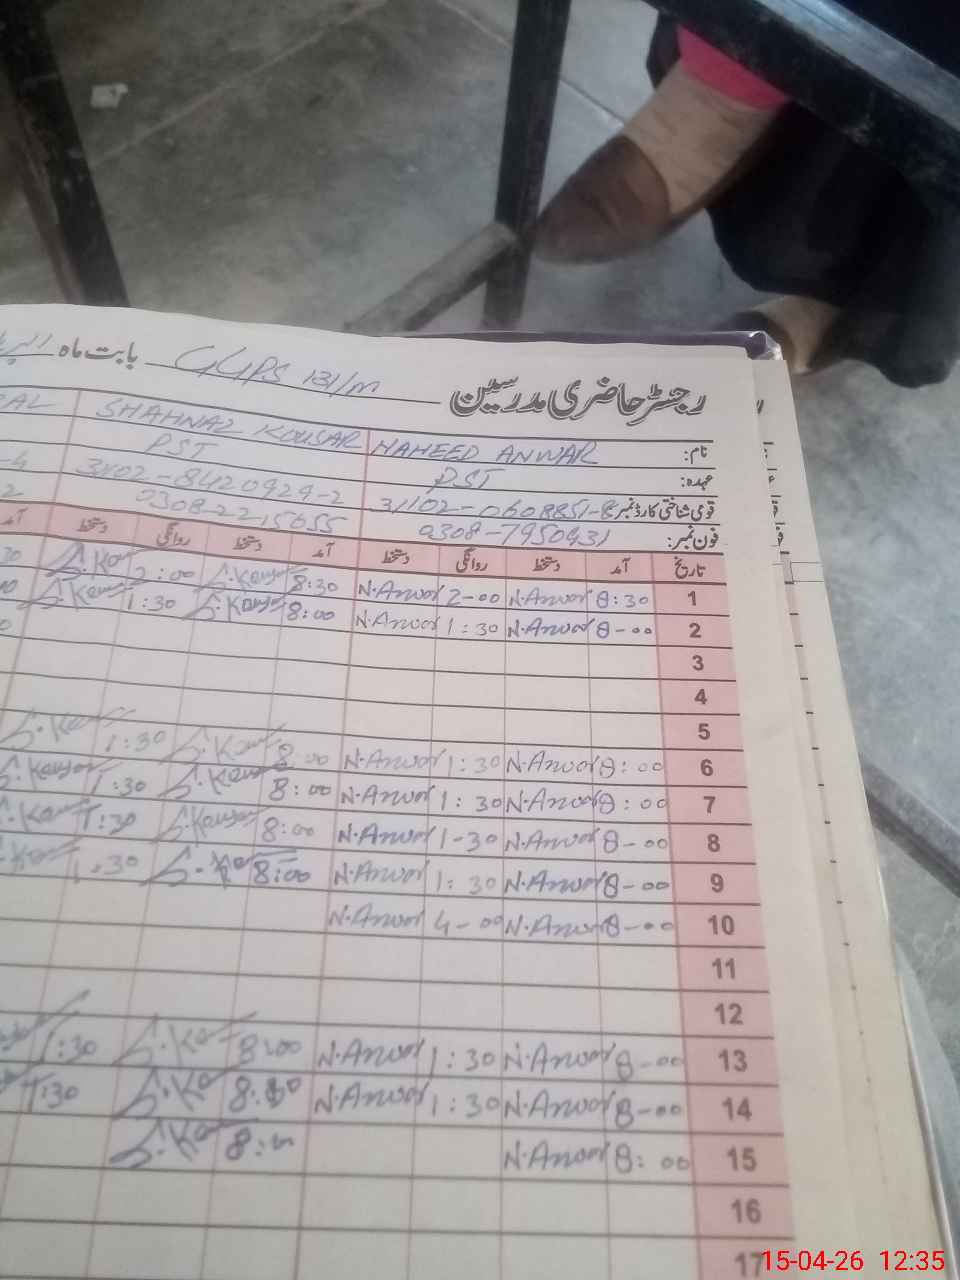 رجسٹر حاضری مدرسین GGPS 131/m بابت ماہ
نام: NAHEED ANWAR SHAHNAZ KOUSAR
عہدہ: PST PST
قومی شناختی کارڈ نمبر 31102-0608851-8 31102-8420929-2
فون نمبر: 0308-7950931 0308-2215655
تاریخ آمد دستخط روانگی دستخط آمد دستخط روانگی دستخط آمد
1 8:30 N.Anwar 2-00 N.Anwar 8:30 S.Kousar 2:00 S.Kou
2 8-00 N.Anwar 1:30 N.Anwar 8:00 S.Kousar 1:30 S.Kousar
3
4
5
6 8:00 N.Anwar 1:30 N.Anwar 8:00 S.Kousar 1:30 S.Kou
7 8:00 N.Anwar 1:30 N.Anwar 8:00 S.Kousar 1:30 S.Kousar
8 8-00 N.Anwar 1-30 N.Anwar 8:00 S.Kousar 1:30 S.Kousar
9 8-00 N.Anwar 1:30 N.Anwar 8:00 S.Kou 1.30
10 8-00 N.Anwar 4-00 N.Anwar
11
12
13 8-00 N.Anwar 1:30 N.Anwar 8:00 S.Kou 1:30
14 8-00 N.Anwar 1:30 N.Anwar 8:00 S.Kou 1:30
15 8:00 N.Anwar S.Kou
16
17
15-04-26 12:35